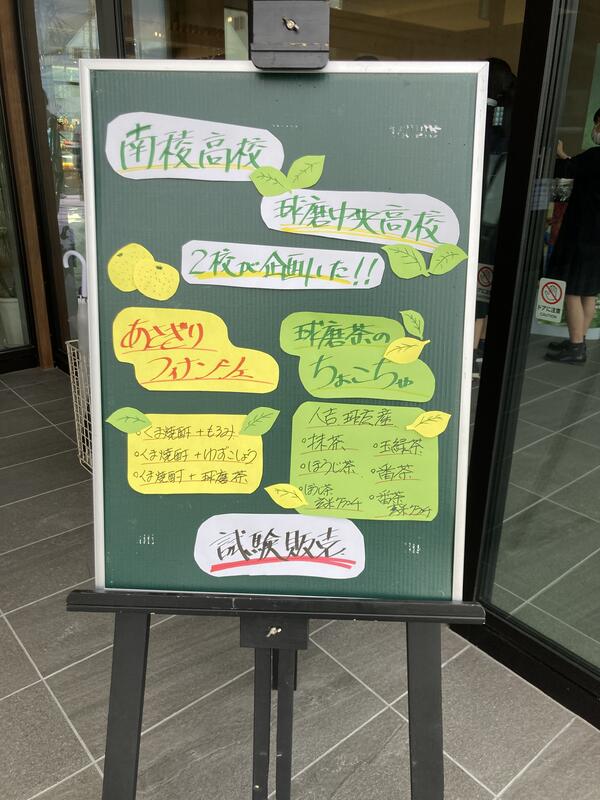 南稜高校
球磨中央高校
2校が企画した!!
あさぎり
フィナンシェ
・くま焼酎+もろみ
・くま焼酎+ゆずこしょう
・くま焼酎+球磨茶
球磨茶の
ちょこちゃ
人吉球磨産
・抹茶 ・玉緑茶
・ほうじ茶 ・番茶
・ほうじ茶 玄米クランチ ・番茶 玄米クランチ
試験販売
ドアに注意
CAUTION